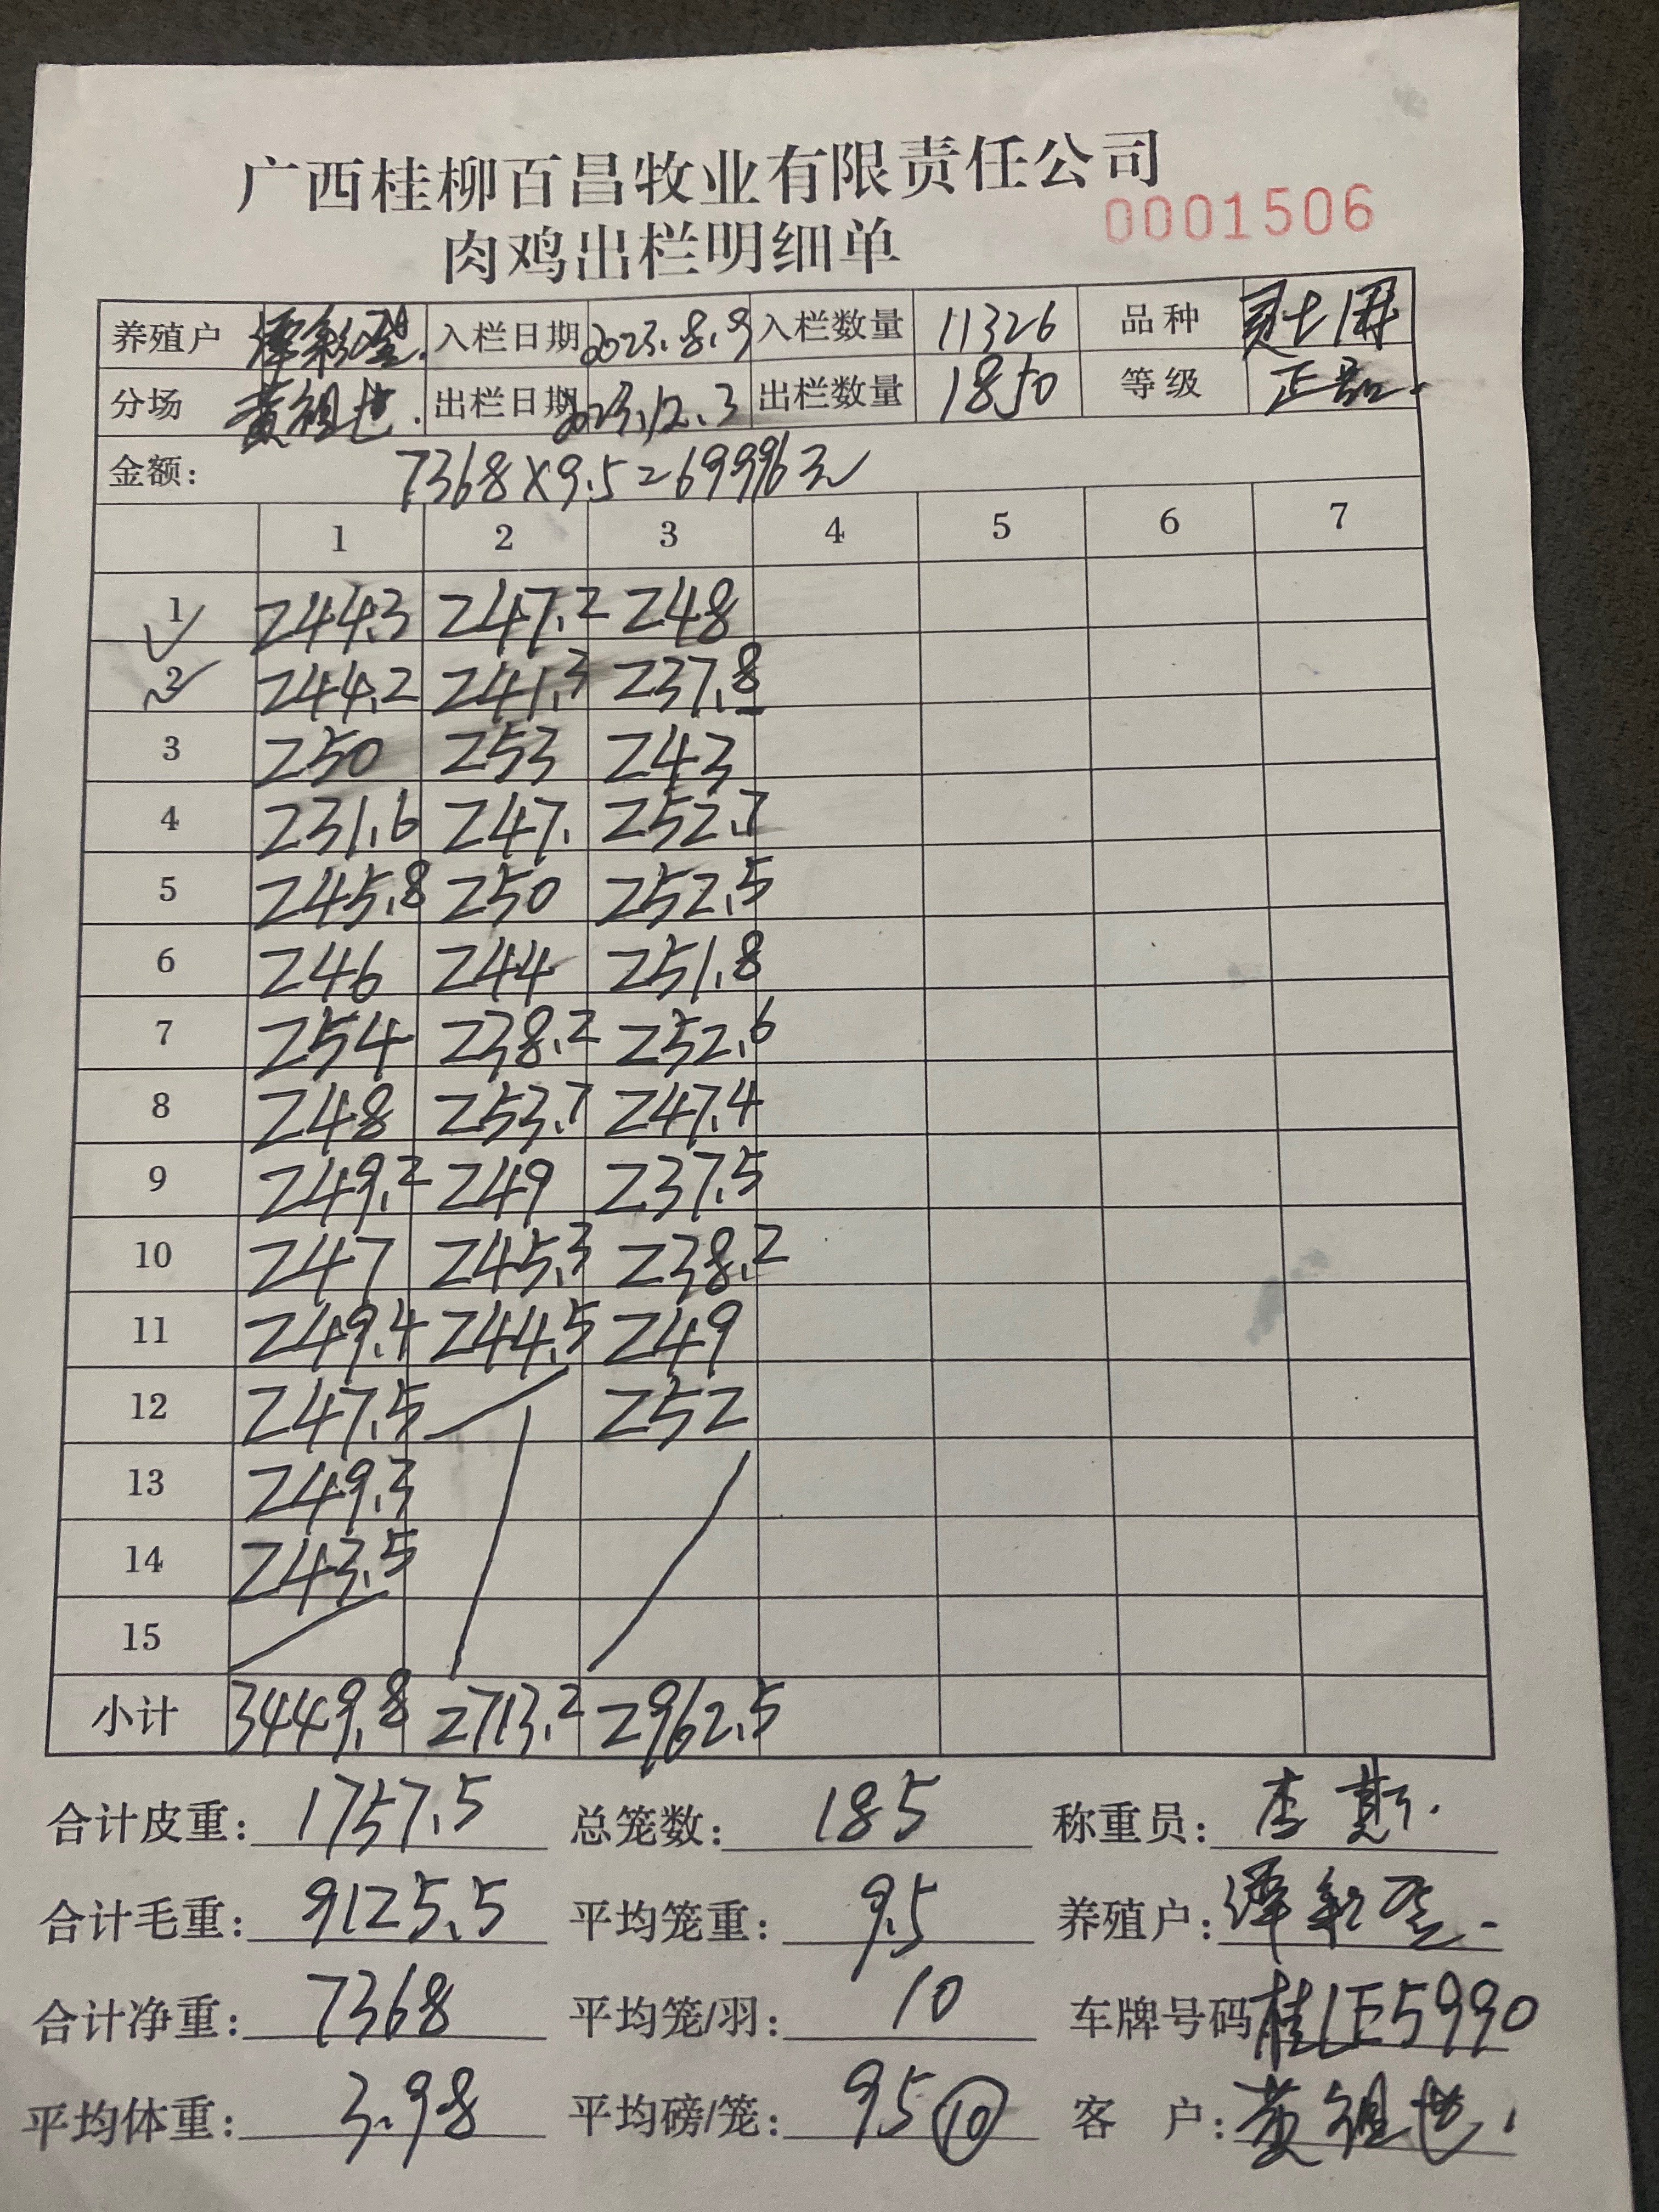 广西桂柳百昌牧业有限责任公司
肉鸡出栏明细单 0001506
养殖户 入栏日期 2023.8.9 入栏数量 11326 品种
分场 黄祖世. 出栏日期 2023.12.3 出栏数量 1850 等级 正品.
金额: 7368×9.5=69996元
1 2 3 4 5 6 7
1 244.3 247.2 248
2 244.2 241.3 237.8
3 250 253 243
4 231.6 247. 252.7
5 245.8 250 252.5
6 246 244 251.8
7 254 238.2 252.6
8 248 253.7 247.4
9 249.2 249 237.5
10 247 245.3 238.2
11 249.4 244.5 249
12 247.5 252
13 249.3
14 243.5
15
小计 3449.8 2713.2 2962.5
合计皮重: 1757.5 总笼数: 185 称重员: 李
合计毛重: 9125.5 平均笼重: 9.5 养殖户: 谭
合计净重: 7368 平均笼/羽: 10 车牌号码 桂LE5990
平均体重: 3.98 平均磅/笼: 95 10 客 户: 黄祖世.